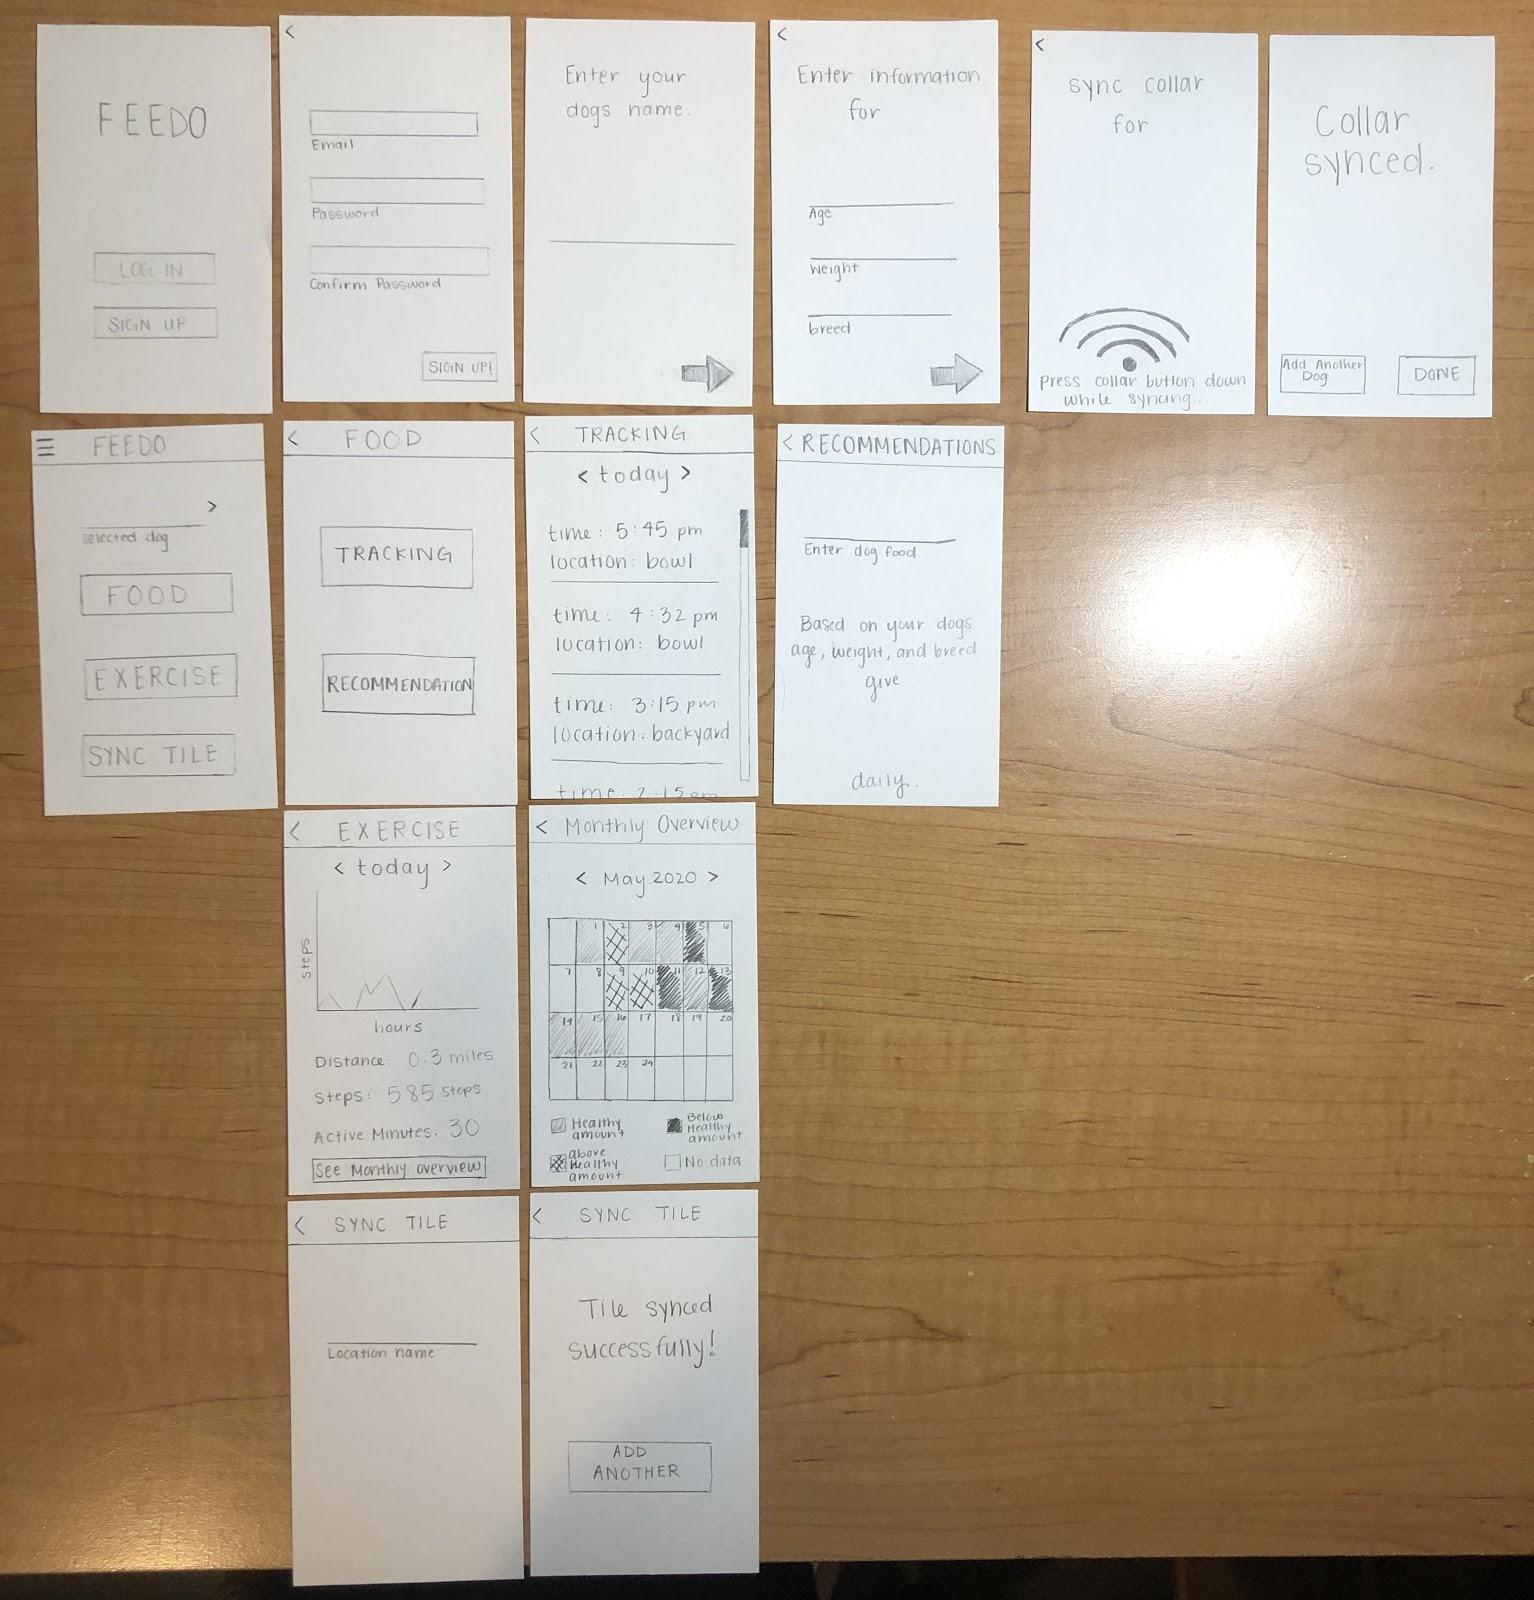 FEEDO
LOG IN
SIGN UP
<
Email
Password
Confirm Password
SIGN UP!
Enter your
dogs name.
<
Enter information
for
Age
weight
breed
<
sync collar
for
press collar button down
while syncing..
Collar
synced.
Add Another
Dog
DONE
FEEDO
>
selected dog
FOOD
EXERCISE
SYNC TILE
< FOOD
TRACKING
RECOMMENDATION
< TRACKING
< today >
time: 5:45 pm
location: bowl
time: 4:32 pm
location: bowl
time: 3:15 pm
location: backyard
time: 2:15 pm
< RECOMMENDATIONS
Enter dog food
Based on your dogs
age, weight, and breed
give
daily.
< EXERCISE
< today >
Steps
hours
Distance: 0.3 miles
Steps: 585 steps
Active Minutes: 30
See Monthly overview
< Monthly Overview
< May 2020 >
1 2 3 4 5 6
7 8 9 10 11 12 13
14 15 16 17 18 19 20
21 22 23 24
Healthy
amount
Below
Healthy
amount
above
Healthy
amount
No data
< SYNC TILE
Location name
< SYNC TILE
Tile synced
successfully!
ADD
ANOTHER